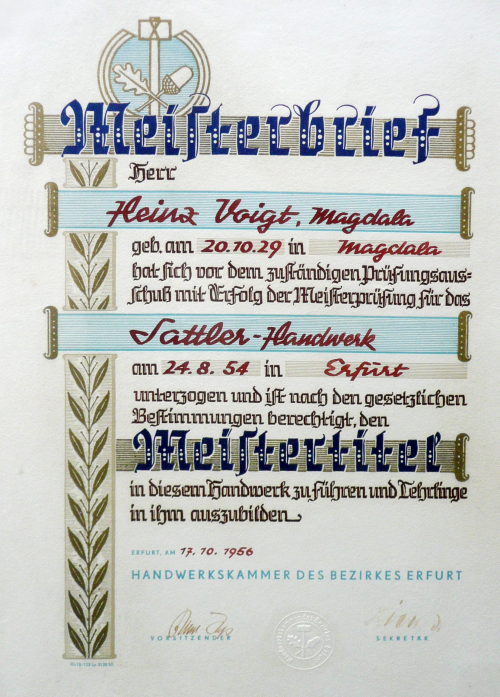 Meisterbrief
Herr
Heinz Voigt, Magdala
geb. am 20.10.29 in Magdala
hat sich vor dem zuständigen Prüfungsaus=
schuß mit Erfolg der Meisterprüfung für das
Sattler-Handwerk
am 24. 8. 54 in Erfurt
unterzogen und ist nach den gesetzlichen
Bestimmungen berechtigt, den
Meistertitel
in diesem Handwerk zu führen und Lehrlinge
in ihm auszubilden
ERFURT, AM 17. 10. 1956
HANDWERKSKAMMER DES BEZIRKES ERFURT
VORSITZENDER
SEKRETÄR